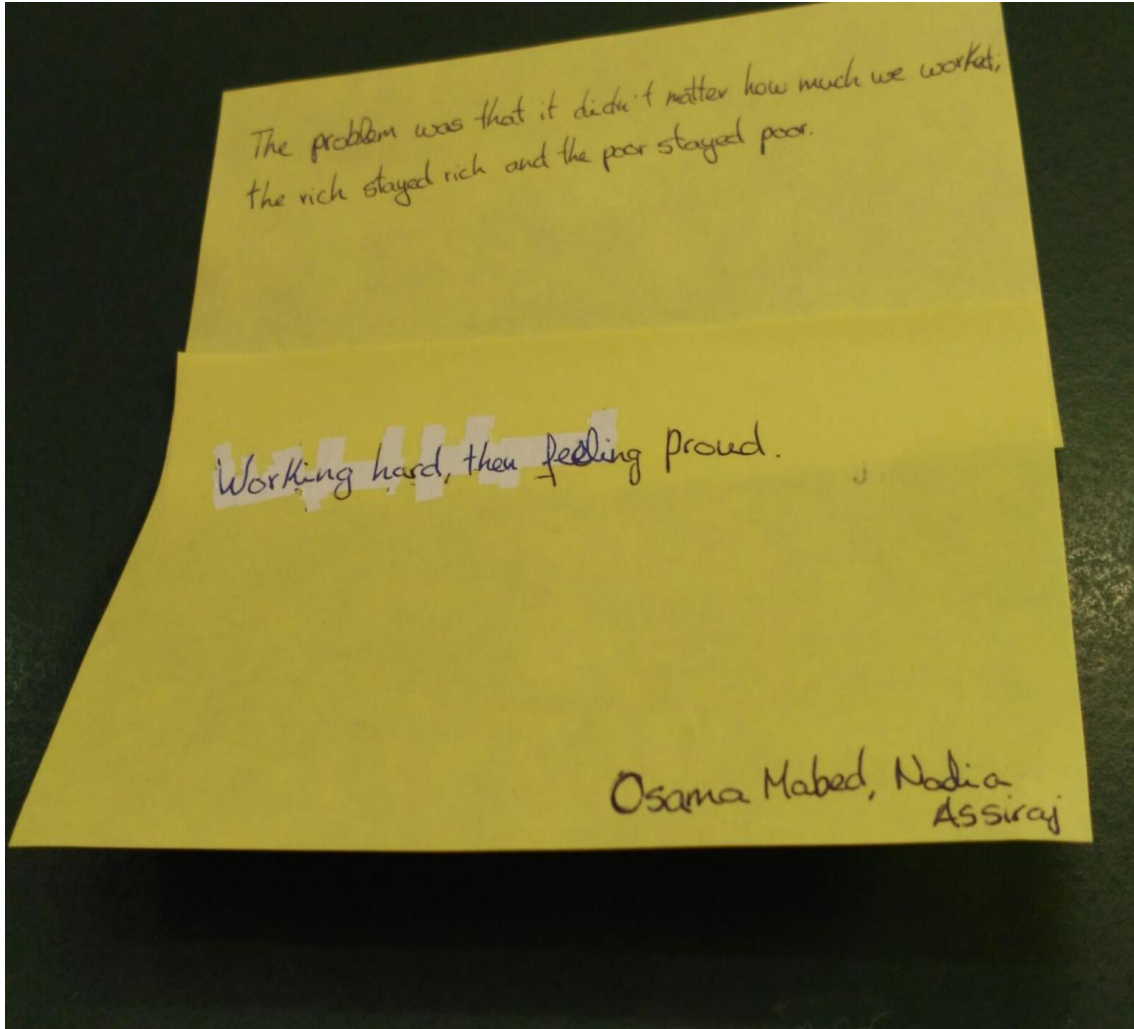 The problem was that it didn't matter how much we worket,
the rich stayed rich and the poor stayed poor.
Working hard, then feeling proud.
Osama Mabed, Nadia
Assiraj